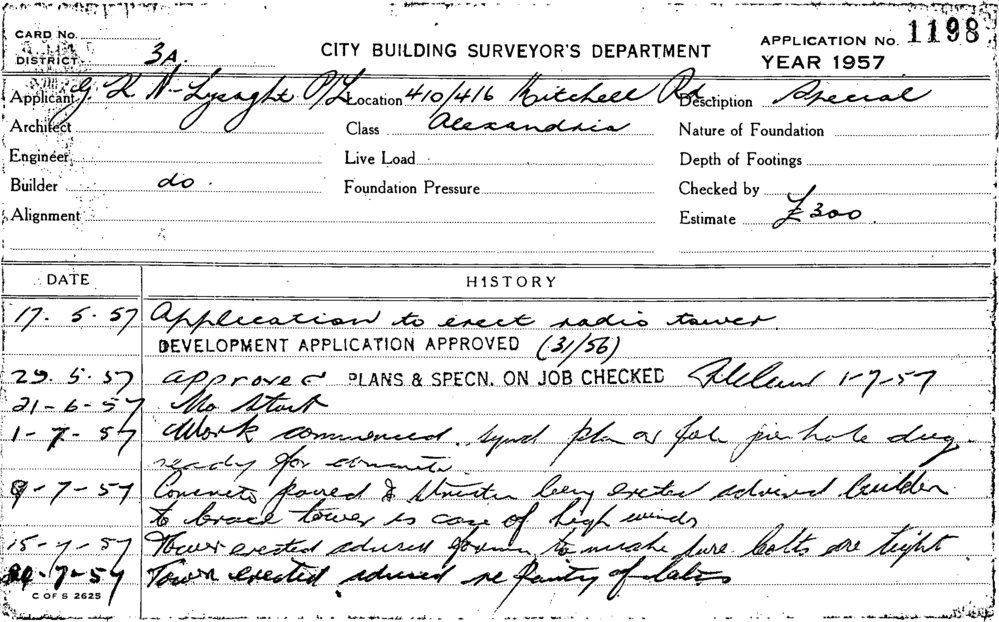 CARD No.
DISTRICT 3A.
CITY BUILDING SURVEYOR'S DEPARTMENT
APPLICATION No. 1198
YEAR 1957
Applicant G. K N- Lysaght P/L Location 410/416 Mitchell Rd Description Special
Architect Class Alexandria Nature of Foundation
Engineer Live Load Depth of Footings
Builder do. Foundation Pressure Checked by
Alignment Estimate £300.
DATE HISTORY
17. 5. 57 Application to erect radio tower
DEVELOPMENT APPLICATION APPROVED (31/56)
29. 5. 57 approved PLANS & SPECN. ON JOB CHECKED 1-7-57
21-6-57 No start
1-7-57 Work commenced. plan on job hole dug
ready for concrete
9-7-57 Concrete poured & being erected advised builder
to brace tower is case of high winds
15-7-57 Tower erected advised to make sure bolts are tight
-7-57 Tower erected advised re of
C OF S 2625